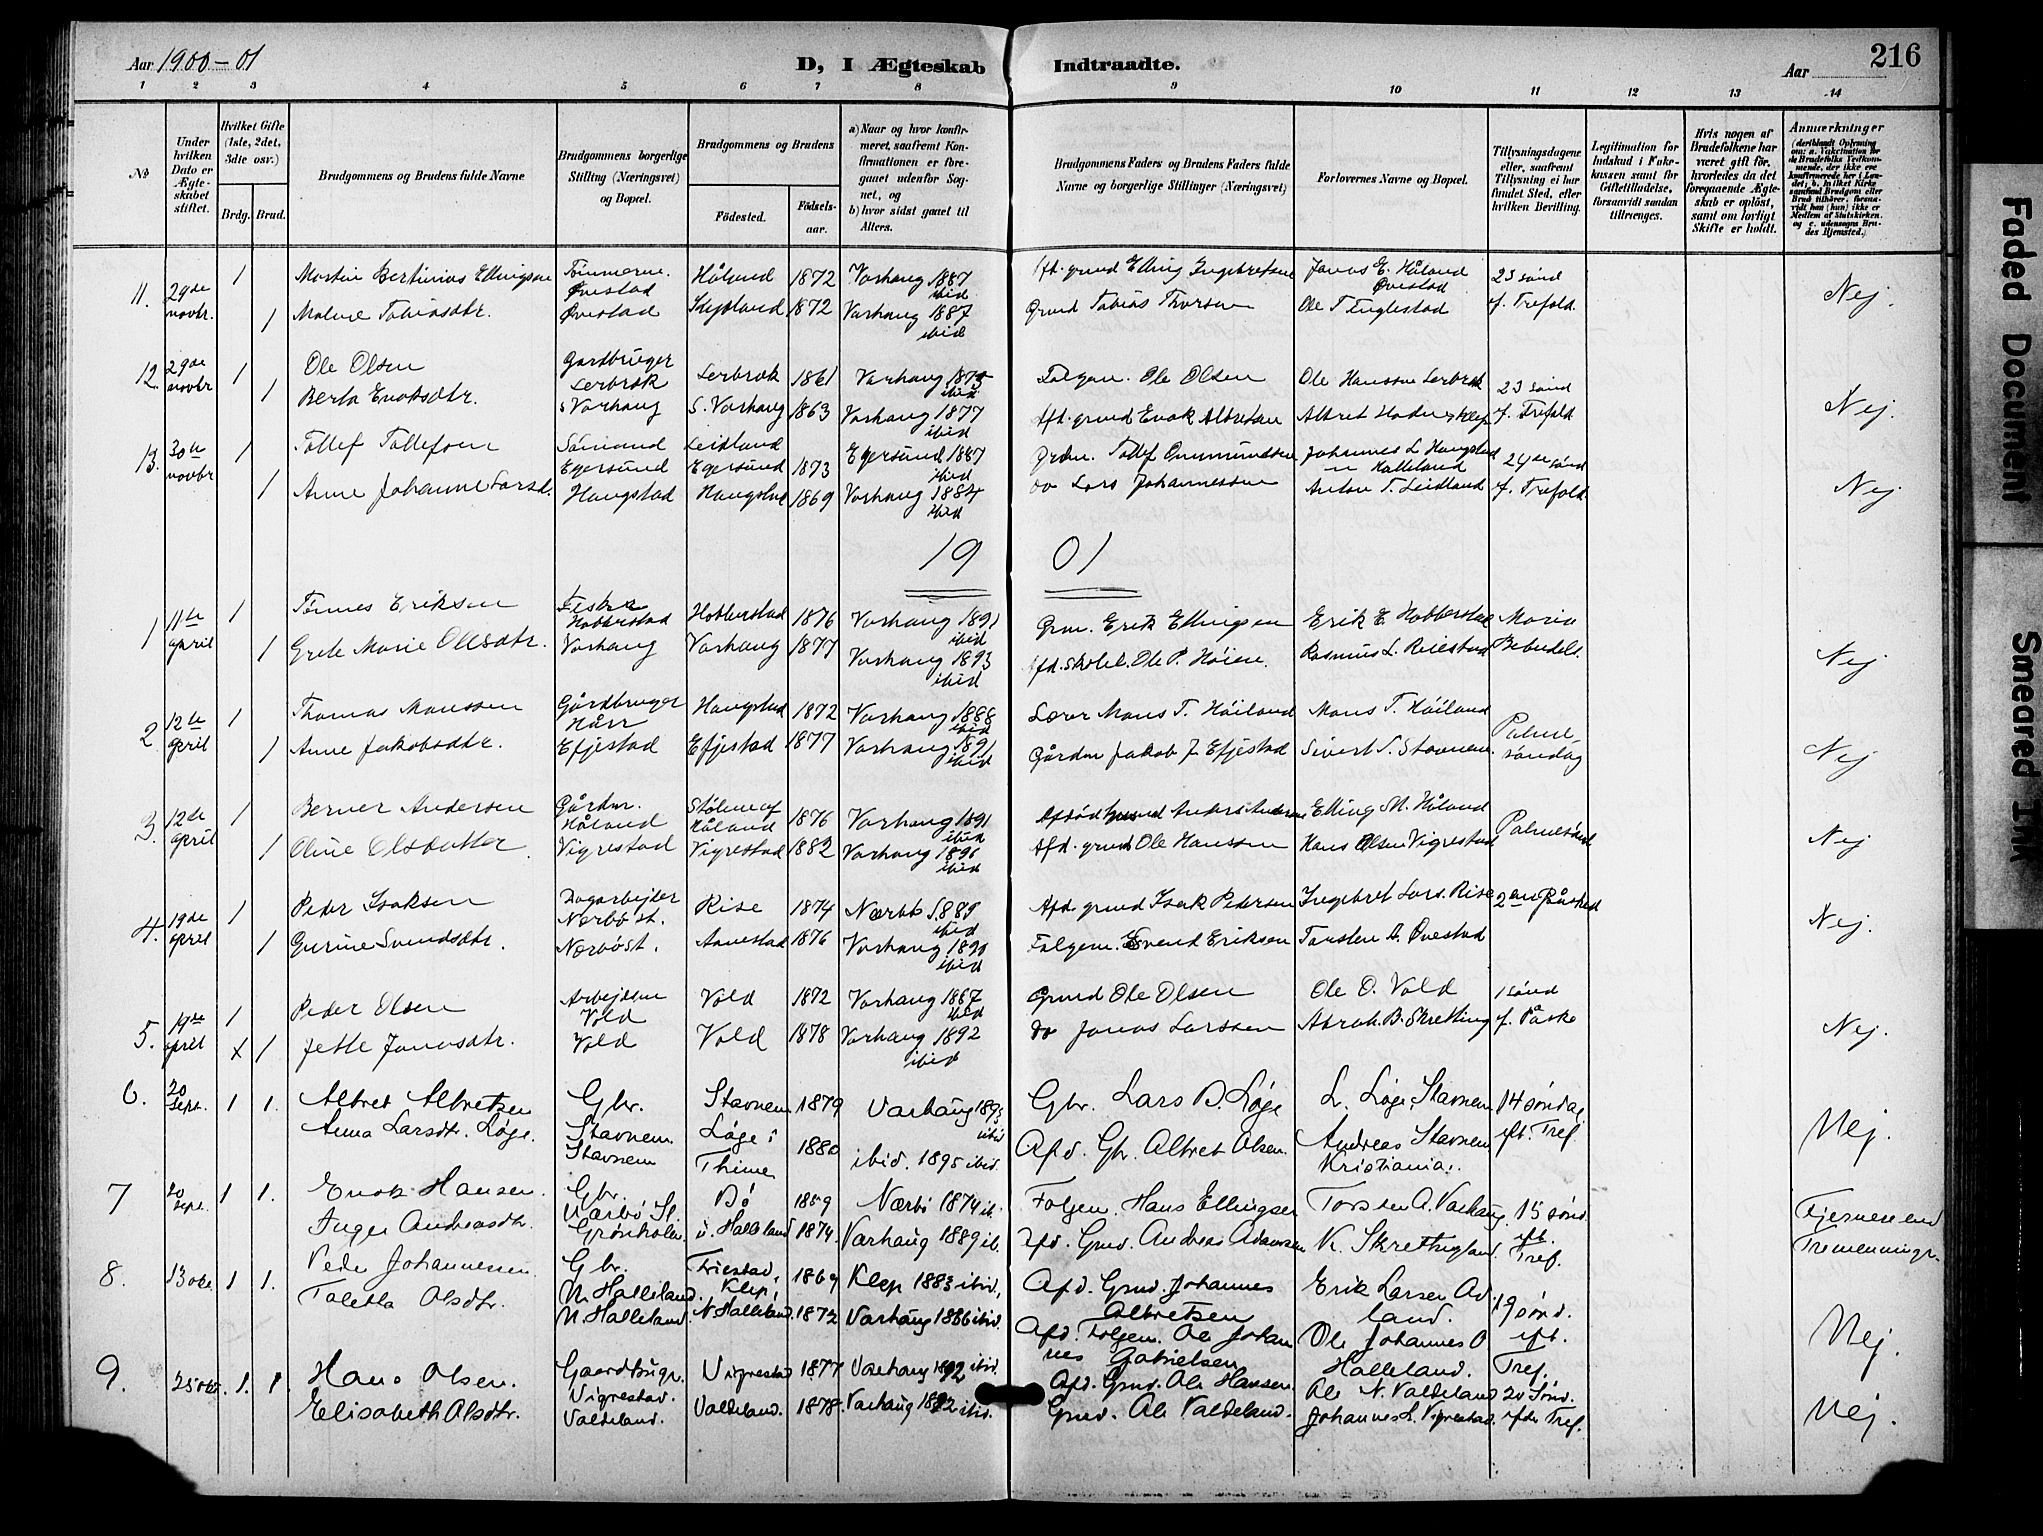 Aar 1900-01
D, I Ægteskab Indtraadte.
Aar
216
1 2 3 4 5 6 7 8 9 10 11 12 13 14
No
Under hvilken Dato er Ægteskabet stiftet.
Hvilket Gifte (1ste, 2det, 3die osv.)
Brdg. Brud.
Brudgommens og Brudens fulde Navne
Brudgommens borgerlige Stilling (Næringsvei) og Bopæl.
Brudgommens og Brudens
Fødested.
Fødselsaar.
a) Naar og hvor konfirmeret, saafremt Konfirmationen er foregaaet udenfor Sognet, og
b) hvor sidst gaaet til Alters.
Brudgommens Faders og Brudens Faders fulde Navne og borgerlige Stillinger (Næringsvei)
Forlovernes Navne og Bopæl.
Tillysningsdagene eller, saafremt Tillysning ei har fundet Sted, efter hvilken Bevilling.
Legitimation for Indskud i Enkekassen samt for Giftetilladelse, forsaavidt saadan tiltrænges.
Hvis nogen af Brudefolkene har været gift før, hvorledes da det foregaaende Ægteskab er opløst, samt om lovligt Skifte er holdt.
Anmærkninger
11. 29de novbr. 1 Martin Bertinius Ellingsen Tømmerm. Øvestad Håland 1872 Varhaug 1887 ibid. Afd. grmd Elling Ingebretsen Jonas E. Håland Øvestad 23 sønd
1 Malene Tobiasdtr. Øvestad 1872 Varhaug 1887 ibid Grmd Tobias Thorsen Ole T f. Trefold. Nej.
12. 29de novbr 1 Ole Olsen Gardbruger Lerbræk Lerbræk 1861 Varhaug 1875 ibid Folgem. Ole Olsen Ole Hanssen Lerbræk 23 sønd
1 Berta Enoksdtr. S Varhaug S. Varhaug 1863 Varhaug 1877 ibid Afd. grmd Enok Albretsen Albret f. Trefold Nej.
13. 30te novbr 1 Tollef Tollefsen Sømand Egersund Leidland Egersund 1873 Egersund 1887 ibid Tollef Ommundsen Johannes L Haugstad Halleland 24de sønd
1 Anne Johanne Larsd. Haugstad Haugstad 1869 Varhaug 1884 ibid do Lars Johannessen Anton T. Leidland f. Trefold. Nej
19 01
1 11te april 1 Tønnes Eriksen Fisker Hobberstad Hobberstad 1876 Varhaug 1891 ibid Grm. Erik Ellingsen Erik E Hobberstad Maria
1 Grete Marie Olsdtr. Varhaug Varhaug 1877 Varhaug 1893 ibid Afd. skolel. Ole P. Høien. Rasmus L. Reiestad Bebudels. Nej
2 12te april 1 Thomas Monssen Gårdbruger Hårr Haugstad 1872 Varhaug 1888 ibid Lærer Mons T. Høiland Mons T. Høiland Palmesøndag
1 Anne Jakobsdtr. Efjestad Efjestad 1877 Varhaug 1891 ibid Gårdm Jakob J. Efjestad Sivert S. Stavnem. Nej
3. 12de april 1 Berner Andersen Gårdm. Håland Stølen af Håland 1876 Varhaug 1891 ibid Elling M. Håland Palmesønd
1 Oline Olsdatter Vigrestad Vigrestad 1882 Varhaug 1896 ibid Afd. grmd Ole Hanssen Hans Olsen Vigrestad Nej
4. 19de april 1 Peder Isaksen Dagarbejder Nærbø st. Rise 1874 Nærbø 1889 ibid Afd. grmd Isak Pedersen Ingebret Lars. Rise 2den Påsked
1 Gurine Svendsdtr. Nærbøst. Aanestad 1876 Varhaug 1890 ibid Folgem. Svend Eriksen Torsten A. Øvestad Nej.
5. 19de april 1 Peder Olsen Arbejdsm Vold Vold 1872 Varhaug 1887 ibid Grmd Ole Olsen Ole O. Vold 1 sønd
x 1 Jette Jonasdtr. Vold Vold 1878 Varhaug 1892 ibid do Jonas Larssen Abrah. B. Skretting f. Påske Nej.
6. 20 Sept. 1 1. Albret Albretsen Gbr. Stavnem Stavnem 1879 Varhaug 1893 ibid Gbr. Lars B. Løge L. Løge, Stavnem 14 søndag
Anna Larsdtr. Løge. Stavnem Løge i Thime 1880 ibid. 1895 ibid. Afd. Gbr. Albret Olsen. Andreas Stavnem Kristiania. eft. Tref. Nej.
7 20 Sept. 1 1. Enok Hansen. Gbr. Nærbø St. Bø 1859 Nærbø 1874 ib. Folgem. Hans Ellingsen Torsten A. Varhaug 15 sønd
Inger Andreasdtr. Grønholen. Halleland 1874. Varhaug 1889 ib. Afd. Grmd. Andreas Adamsen K. Skrettingland eft. Tref. Fjernere end Tremenninger
8. 13 okt. 1 1. Peder Johannessen Gbr. N. Halleland. Friestad, Klep, 1869 Klep 1883 ibid, Afd. Grmd. Johannes Albretsen Erik Larsen Adland. 19 sønd.
Taletta Olsdtr. N. Halleland. N. Halleland. 1872 Varhaug 1886 ibid. Afd. Folgem. Ole Johannes Gabrielsen Ole Johannes O Halleland. eft. Tref. Nej.
9. 25 okt. 1. 1. Hans Olsen. Gaardbrugr. Vigrestad. Vigrestad 1877 Varhaug 1892 ibid. Afd. Grmd. Ole Hansen. Ole N. Valdeland 20 Sønd.
Elisabeth Olsdtr. Valdeland. Valdeland. 1878. Varhaug 1892 ibid. Grmd. Ole Valdeland. Johannes L. Vigrestad. efter Tref. Nej.
Faded Document
Smeared Ink